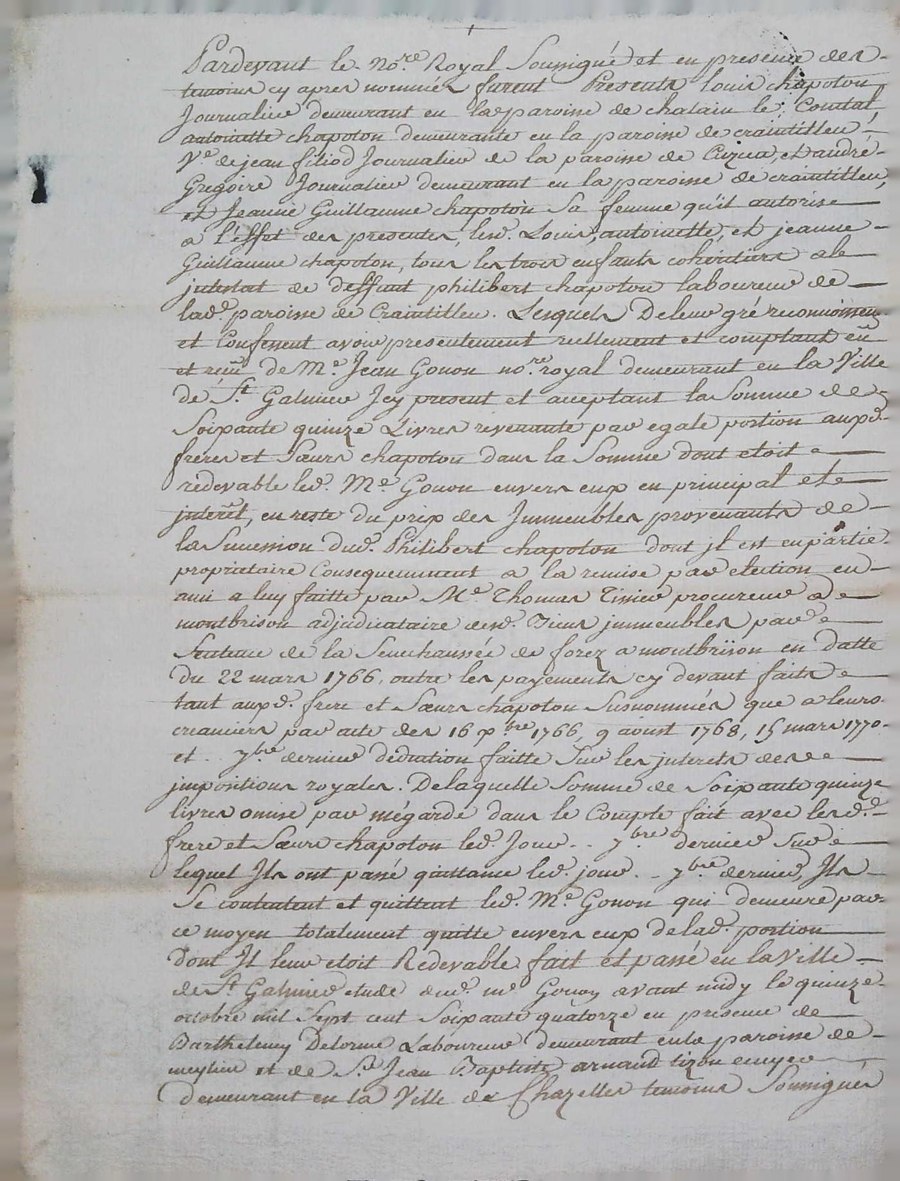 Pardevant le no.re Royal Soussigné et en presence des
temoins cy apres nommés furent Presents louis chapoton
Journalier demeurant en la paroisse de chalain le Comtal,
antoinette chapoton demeurante en la paroisse de craintilleu,
V.e de jean filiod Journalier de la paroisse de Cuzieu, et andré
Gregoire Journalier demeurant en la paroisse de craintilleu,
et Jeanne Guillaume chapoton sa femme qu'il autorise
a l'effet des presentes, lesd. Louis, antoinette, et jeanne
Guillaume chapoton, tous les trois enfants coheritiers ab
intestat de deffunt philibert chapoton laboureur de
lad.e paroisse de Craintilleu. Lesquels De leur gré reconnoissent
et Confessent avoir presentement reellement et comptant eu
et reçu de M.e Jean Gonon no.re royal demeurant en la Ville
de S.t Galmier Icy present et acceptant la Somme de
Soixante quinze Livres revenante par egale portion auxd.
freres et Sœurs chapoton dans la Somme dont etoit
redevable led. M.e Gonon envers eux en principal et
interêt, en reste du prix des Immeubles provenants de
la Succession dud. Philibert chapoton dont jl est en partie
propriétaire Consequemment a la remise par election en
ami a luy faitte par M.e Thomas Tissier procureur a
montbrison adjudicataire desd. Immeubles par
Sentence de la Senechaussée de forez a montbrison en datte
du 22 mars 1766, outre les payements cy devant faits
tant auxd. frere et Sœurs chapoton Susnommés que a leurs
creanciers par acte des 16 x.bre 1766, 9 aoust 1768, 15 mars 1770
et .. 7.bre dernier deduction faitte Sur les interets des
impositions royales. De laquelle Somme de Soixante quinze
livres omise par mégarde dans le Compte fait avec lesd.
frere et Sœurs chapoton led. Jour .. 7.bre dernier Sur
lequel Ils ont passé quittance led. jour .. 7.bre dernier, Ils
Se contentent et quittent led. M.e Gonon qui demeure par
ce moyen totalement quitte envers eux de lad. portion
dont Il leur etoit Redevable fait et passé en la Ville
de S.t Galmier etude dud. me Gonon avant midy le quinze
octobre mil Sept cent Soixante quatorze en presence de
Barthelemy Delorme Laboureur demeurant en la paroisse de
meylieu et de S.r Jean Baptiste arnaud
demeurant en la Ville de Chazelles temoins Soussignés